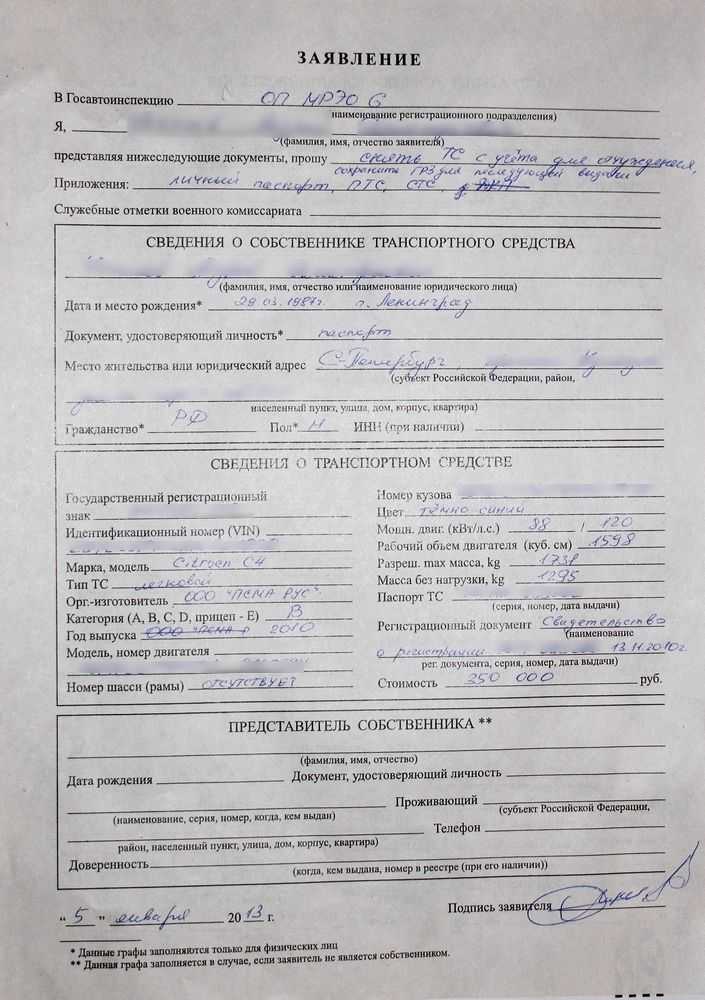 ЗАЯВЛЕНИЕ
В Госавтоинспекцию ОП МРЭО 6
наименование регистрационного подразделения)
Я,
(фамилия, имя, отчество заявителя)
представляя нижеследующие документы, прошу снять ТС с учёта для отчуждения,
сохранить ГРЗ для последующей выдачи
Приложения: личный паспорт, ПТС, СТС
Служебные отметки военного комиссариата
СВЕДЕНИЯ О СОБСТВЕННИКЕ ТРАНСПОРТНОГО СРЕДСТВА
(фамилия, имя, отчество или наименование юридического лица)
Дата и место рождения* 29.03.1987г. г. Ленинград
Документ, удостоверяющий личность* паспорт
Место жительства или юридический адрес С-Петербург,
(субъект Российской Федерации, район,
населенный пункт, улица, дом, корпус, квартира)
Гражданство* РФ Пол* М ИНН (при наличии)
СВЕДЕНИЯ О ТРАНСПОРТНОМ СРЕДСТВЕ
Государственный регистрационный
знак
Идентификационный номер (VIN)
Марка, модель Citroen C4
Тип ТС легковой
Орг.-изготовитель ООО "ПСМА РУС"
Категория (A, B, C, D, прицеп - E) B
Год выпуска ООО "ПСМА Р 2010
Модель, номер двигателя
Номер шасси (рамы) отсутствует
Номер кузова
Цвет тёмно-синий
Мощн. двиг. (кВт/л.с.) 88 / 120
Рабочий объем двигателя (куб. см) 1598
Разреш. max масса, kg 1731
Масса без нагрузки, kg 1295
Паспорт ТС
(серия, номер, дата выдачи)
Регистрационный документ Свидетельство
(наименование
о регистрации 13.11.2010г.
рег. документа, серия, номер, дата выдачи)
Стоимость 350 000 руб.
ПРЕДСТАВИТЕЛЬ СОБСТВЕННИКА **
(фамилия, имя, отчество)
Дата рождения Документ, удостоверяющий личность
(наименование, серия, номер, когда, кем выдан)
Проживающий
(субъект Российской Федерации,
район, населенный пункт, улица, дом, корпус, квартира)
Телефон
Доверенность
(когда, кем выдана, номер в реестре (при его наличии))
"5" января 2013 г.
Подпись заявителя
* Данные графы заполняются только для физических лиц
** Данная графа заполняется в случае, если заявитель не является собственником.